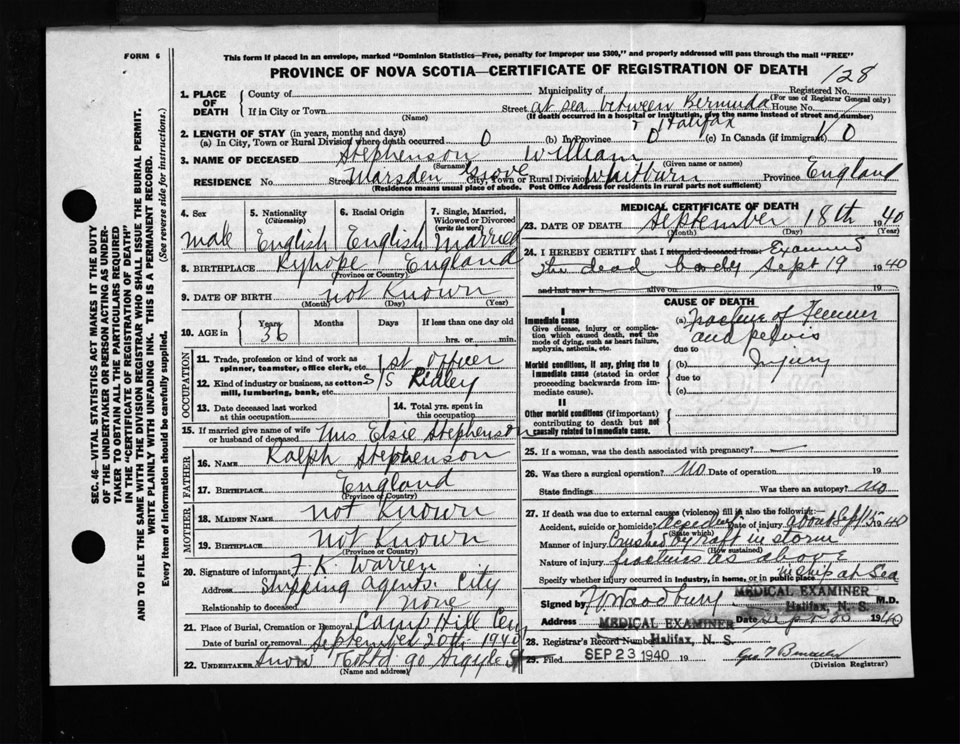 FORM 6
This form if placed in an envelope, marked "Dominion Statistics—Free, penalty for improper use $300," and properly addressed will pass through the mail "FREE"
PROVINCE OF NOVA SCOTIA—CERTIFICATE OF REGISTRATION OF DEATH 128
SEC. 46—VITAL STATISTICS ACT MAKES IT THE DUTY
OF THE UNDERTAKER OR PERSON ACTING AS UNDER-
TAKER TO OBTAIN ALL THE PARTICULARS REQUIRED
IN THE "CERTIFICATE OF REGISTRATION OF DEATH"
AND TO FILE THE SAME WITH THE DIVISION REGISTRAR WHO SHALL ISSUE THE BURIAL PERMIT.
WRITE PLAINLY WITH UNFADING INK. THIS IS A PERMANENT RECORD.
Every item of information should be carefully supplied. (See reverse side for instructions.)
1. PLACE OF DEATH County of Municipality of Registered No.
(For use of Registrar General only)
If in City or Town (Name) Street at sea between Bermuda House No.
(If death occurred in a hospital or institution, give the name instead of street and number)
+ Halifax
2. LENGTH OF STAY (in years, months and days)
(a) In City, Town or Rural Division where death occurred 0 (b) In Province 0 (c) In Canada (if immigrant) 0
3. NAME OF DECEASED Stephenson William
(Surname) (Given name or names)
RESIDENCE No. Street Marsden Grove City, Town or Rural Division Whitburn Province England
(Residence means usual place of abode. Post Office Address for residents in rural parts not sufficient)
4. Sex 5. Nationality (Citizenship) 6. Racial Origin 7. Single, Married, Widowed or Divorced (write the word)
Male English English Married
8. BIRTHPLACE Ryhope England
(Province or Country)
9. DATE OF BIRTH not Known
(Month) (Day) (Year)
10. AGE in Years Months Days If less than one day old
36 hrs. or min.
OCCUPATION
11. Trade, profession or kind of work as spinner, teamster, office clerk, etc. 1st Officer
12. Kind of industry or business, as cotton mill, lumbering, bank, etc. S/S Ridley
13. Date deceased last worked at this occupation
14. Total yrs. spent in this occupation
15. If married give name of wife or husband of deceased Mrs Elsie Stephenson
FATHER
16. NAME Ralph Stephenson
17. BIRTHPLACE England
(Province or Country)
MOTHER
18. MAIDEN NAME not Known
19. BIRTHPLACE Not Known
(Province or Country)
20. Signature of informant F. K. Warren
Address Shipping agents. City
Relationship to deceased none
21. Place of Burial, Cremation or Removal Camp Hill Cem
Date of burial or removal September 20th 1940
22. UNDERTAKER Snow & Co Ltd 90 Argyle St
(Name and address)
MEDICAL CERTIFICATE OF DEATH
23. DATE OF DEATH September 18th 1940
(Month) (Day) (Year)
24. I HEREBY CERTIFY that I attended deceased from: Examined
the dead body Sept 19 1940
and last saw h alive on 19
CAUSE OF DEATH
I
Immediate cause
Give disease, injury or complication which caused death, not the mode of dying, such as heart failure, asphyxia, asthenia, etc.
(a) Fracture of Femur
and pelvis
due to
Morbid conditions, if any, giving rise to immediate cause (stated in order proceeding backwards from immediate cause).
(b) Injury
due to
(c)
II
Other morbid conditions (if important) contributing to death but not causally related to immediate cause.
25. If a woman, was the death associated with pregnancy? —
26. Was there a surgical operation? No Date of operation 19
State findings Was there an autopsy? No
27. If death was due to external causes (violence) fill in also the following:—
Accident, suicide or homicide? Accident Date of injury about Sept 15 1940
(State which)
Manner of injury Crushed by raft in storm
(How sustained)
Nature of injury fractures as above
Specify whether injury occurred in industry, in home, or in public place in ship at Sea
Signed by F. Woodbury MEDICAL EXAMINER M.D.
Halifax, N. S.
Address MEDICAL EXAMINER Date Sept 20 1940
Halifax, N. S.
28. Registrar's Record Number
29. Filed SEP 23 1940 19
(Division Registrar)